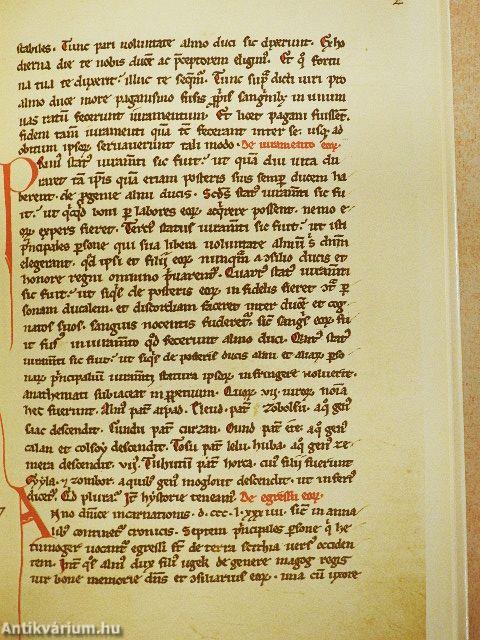 stabiles. Tunc pari voluntate almo duci sic dixerunt. Ex ho
dierna die te nobis ducē ac p̄ceptorem eligim᷒. Et qͦ fortu
na tua te duxerit. illuc te seqm̄. Tunc sup͛ dicti uiri pro
almo duce more paganismo fusis ꝓp͛is sanguīb; in unum
uas ratū fecerunt iuramentum. Et licet pagani fuissēt.
fidem tam̄ iuramenti quā tc̄ fecerant inter se. usq; ad
obitum ipsoꝝ seruauerunt tali modo. De iuramento eoꝝ.
Primus stat᷒ iuram̄ti sic fuit. ut quā diu uita du
raret tā ip̄is quā etiam posteris suis semꝑ ducem ha
berent. de ꝓgenie almi ducis. Scd̄s stat᷒ iuram̄ti sic fu
it. ut qͥcqͥd boni ꝑ labores eoꝝ acq͛rere possent. nemo e
oꝝ expers fieret. Terci᷒ status iuram̄ti sic fuit. ut isti
p͛ncipales ꝑsone qui sua libera uoluntate almū s᷒ dn̄m
elegerant. qd̄ ipsi et filij eoꝝ nunquā a ↄsilio ducis et
honore regni omnino p͛uarent᷒. Quart᷒ stat᷒ iuram̄ti
sic fuit. ut siqͥs de posteris eoꝝ infidelis fieret ↄt͛ ꝑ
sonam ducalem. et discordiam faceret inter ducē et cog
natos suos. sanguis nocentis funderet᷒. sic̄ sangͥs eoꝝ fu
it fus᷒ in iuram̄to qd̄ fecerunt almo duci. Qͥnt᷒ stat᷒
iuram̄ti sic fuit. ut siqͥs de posteris ducis almi et aliaꝝ ꝑso
naꝝ p͛ncipaliū iuram̄ti statuta ipsoꝝ infringere uoluerit.
anathemati subiaceat in ꝑpetuum. Quoꝝ. vij. uiroꝝ nōia
hec fuerunt. Alm᷒ pat͛ arpad. Eleud. pat͛ zobolsu. a qͦ gen᷒
saac descendit. Cundu pat͛ curzan. Ound pat͛ ete. a qͦ gen᷒
calan et colsoy descendit. Tosu pat͛ lelu. huba. a qͦ gen᷒ ze
mera descendit. vij. Tuhutū pat͛ horca. cui᷒ filij fuerunt
Gyyla. et zombor. a quib; gen᷒ moglout descendit. ut inferi᷒
dicet᷒. Qͥd plura. Iter hystorie teneam᷒. De egressu eoꝝ.
Anno dn̄ice incarnationis. d. ccc. lxxx. iiii. sic̄ in anna
lib; continet᷒ cronicis. Septem p͛ncipales ꝑsone qͥ he
tumoger uocant᷒ egressi st̄ de terra scithia uers᷒ occiden
tem. Int͛ qͦs alm᷒ dux fili᷒ ugek de genere magog regis
uir bone memorie dn̄s et ↄsiliarius eoꝝ. una cū uxore
Antikvárium.hu